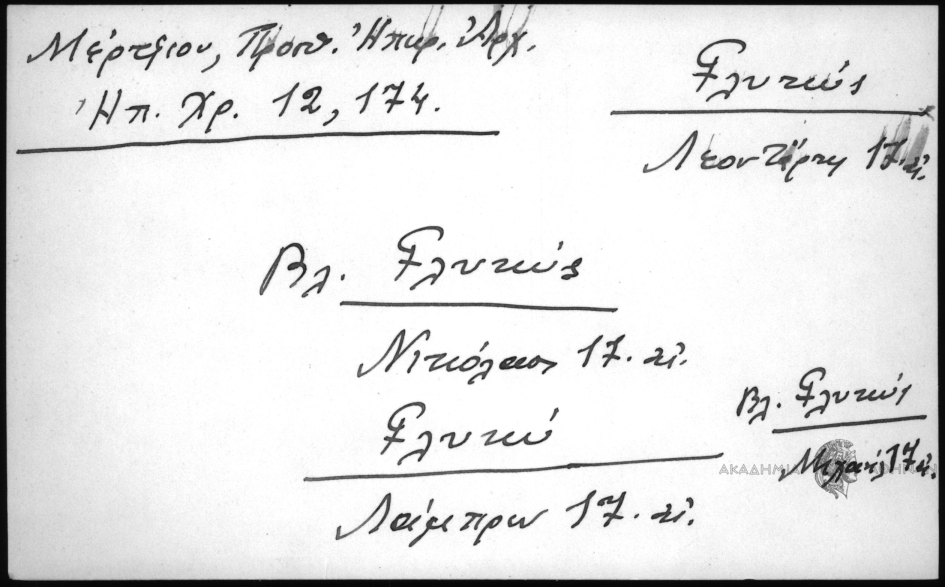 Μέρτζιου, Προπ. Ἠπειρ. Ἀρχ.
Ἠπ. Χρ. 12, 174.
Γλυκύς
Λεοντάρης 17. αἰ.
Βλ. Γλυκύς
Νικόλαος 17. αἰ.
Γλυκύ
Λάμπρω 17. αἰ.
Βλ. Γλυκύς
Μιχαήλ 17 αἰ.
ΑΚΑΔΗΜΙΑ ΑΘΗΝΩΝ